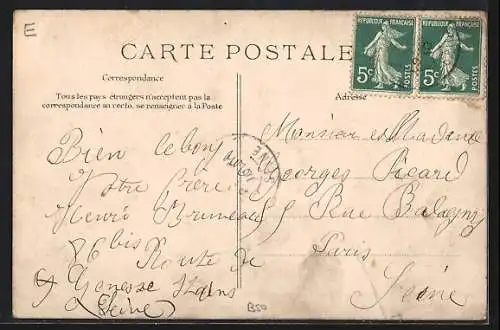 E
CARTE POSTALE
REPUBLIQUE FRANÇAISE
5c POSTES
REPUBLIQUE FRANÇAISE
5c POSTES
Correspondance
Tous les pays étrangers n'acceptent pas la
correspondance au recto, se renseigner à la Poste
Adresse
Bien le bonj
Votre frère
Henri Bruneau
86 bis Route de
Seine
Monsieur et Madame
Georges Picard
Rue Balagny
Paris
Seine
B50